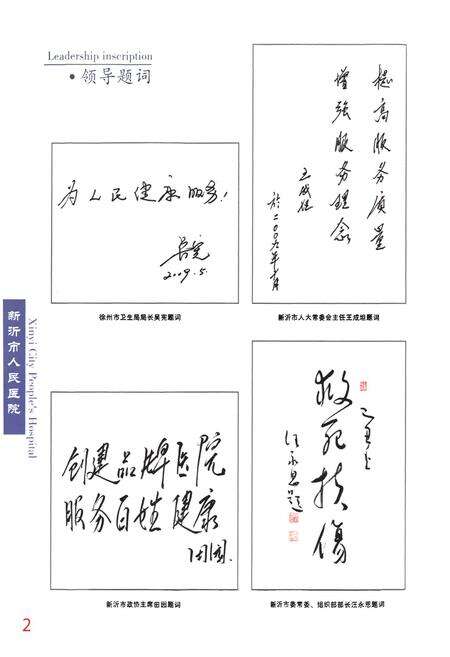 Leadership inscription
•领导题词
为人民健康服务!
吴宪
2009.5.
徐州市卫生局局长吴宪题词
提高服务质量
增强服务理念
王成坦
新沂市人大常委会主任王成坦题词
创建品牌医院
服务百姓健康
田园.
新沂市政协主席田园题词
救死扶傷
己丑之
汪永思题
新沂市委常委、组织部部长汪永思题词
新沂市人民医院
Xinyi City People's Hospital
2